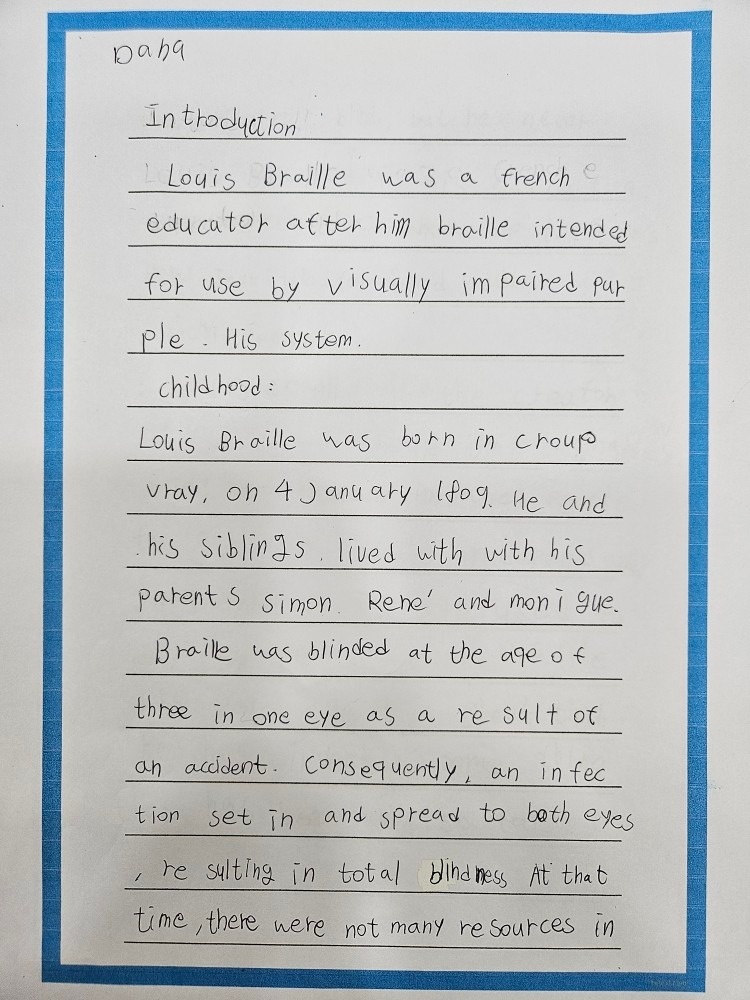 Dana
Introduction
Louis Braille was a french
educator after him braille intended
for use by visually impaired pur
ple. His system.
childhood:
Louis Braille was born in croup
vray, on 4 January 1809. He and
his siblings. lived with with his
parents simon. René and monigue.
Braille was blinded at the age of
three in one eye as a re sult of
an accident. Consequently, an infec
tion set in and spread to both eyes
, re sulting in total blindness At that
time, there were not many resources in